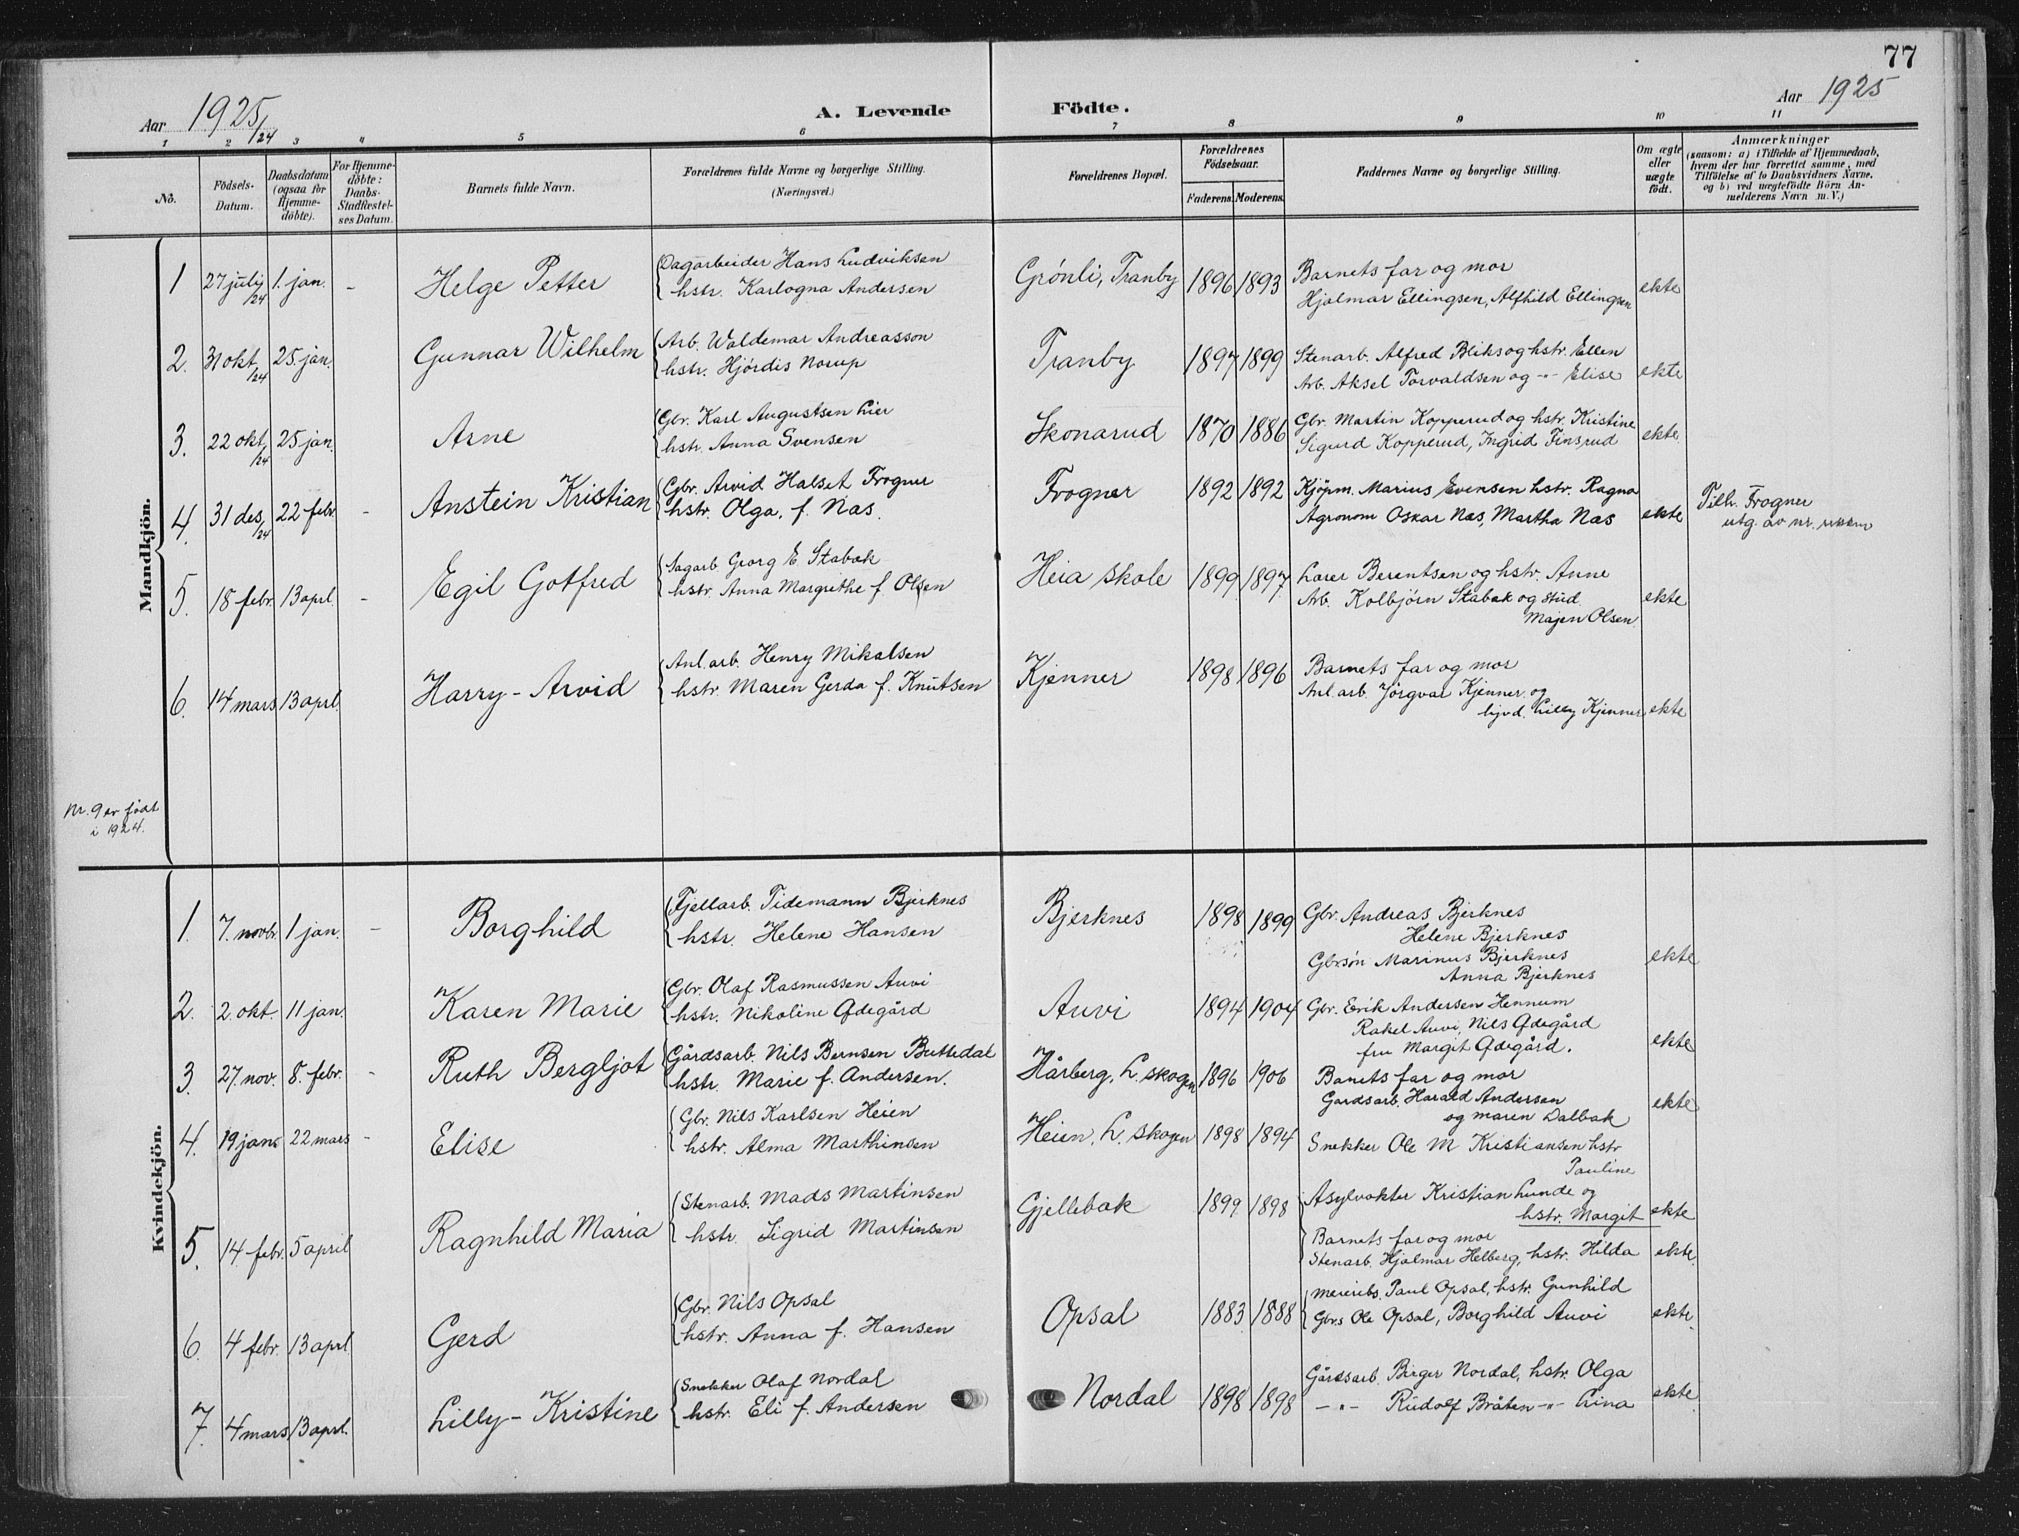 77
Aar 1925/24
A. Levende Födte.
Aar 1925
1 2 3 4 5 6 7 8 9 10 11
No.
Födsels-Datum.
Daabsdatum (ogsaa for Hjemme-döbte).
For Hjemme-döbte: Daabs-Stadfæstel-ses Datum.
Barnets fulde Navn.
Forældrenes fulde Navne og borgerlige Stilling.
(Næringsvei.)
Forældrenes Bopæl.
Forældrenes Födselsaar.
Faderens. Moderens.
Faddernes Navne og borgerlige Stilling.
Om ægte eller uægte födt.
Anmærkninger
(saasom: a) i Tilfælde af Hjemmedaab,
hvem der har forrettet samme, med
Tilföielse af to Daabsvidners Navne.
og b) ved uægtefödte Börn An-
melderens Navn m. V.)
Mandkjön.
1 27 julij/24 1. jan. - Helge Petter
Dagarbeider Hans Ludviksen
hstr. Karlogna Andersen
Grönli, Tranby 1896 1893
Barnets far og mor
Hjalmar Ellingsen, Alfhild Ellingsen ekte
2. 31 okt/24 25. jan. Gunnar Wilhelm
Arb. Waldemar Andreasson
hstr. Hjördis Norup
Tranby 1897 1899
Stenarb. Alfred Bliks og hstr. Ellen
Arb. Aksel Torvaldsen og -"- Elise ekte
3. 22 okt./24 25 jan. Arne
Gbr. Karl Augustsen Lier
hstr. Anna Svensen
Skonarud 1870 1886
Gbr. Martin Kopperud og hstr. Kristine
Sigurd Kopperud, Ingrid Finsrud ekte.
4. 31 des/24 22 febr. - Anstein Kristian
Gbr. Arvid Halset Frogner
hstr. Olga, f. Næs.
Frogner 1892 1892
Kjöpm. Marius Evensen hstr. Ragna
Agronom Oskar Næs, Martha Næs ekte
Tilh. Frogner
utg. av nr. rekken
5. 18 febr. 13 aprl. - Egil Gotfred
Sagarb. Georg E Stabæk
hstr. Anna Margrethe f. Olsen
Heia skole 1899 1897
Lærer Berentsen og hstr. Anne
Arb. Kolbjörn Stabæk og stud.
Majen Olsen ekte
6. 14 mars 13 aprl. Harry - Arvid
Anl. arb. Henry Mikalsen
hstr. Maren Gerda f. Knutsen
Kjenner 1898 1896
Barnets far og mor
Anl. arb. Jörgvar Kjenner og
Lilly Kjenner ekte
Nr. 9 er födt
i 1924.
Kvindekjön.
1. 7. novbr. 1 jan. - Borghild
Fjellarb. Tidemann Bjerknes
hstr. Helene Hansen
Bjerknes 1898 1899
Gbr. Andreas Bjerknes
Helene Bjerknes
Gbrsön Marinus Bjerknes
Anna Bjerknes ekte
2. 2. okt. 11 jan. Karen Marie
Gbr. Olaf Rasmussen Auvi
hstr. Nikoline Ødegård
Auvi 1894 1904
Gbr. Erik Andersen Hennum
Rakel Auvi, Nils Ødegård
fru Margit Ødegård. ekte
3. 27. nov. 8. febr. - Ruth Bergljot
Gårdsarb. Nils Bernsen Buttedal
hstr. Marie f. Andersen.
Hårberg, L. skogen 1896 1906
Banets far og mor
Gardsarb. Harald Andersen
og Maren Dalbak ekte
4. 19 jan. 22 mars - Elise
Gbr. Nils Karlsen Heien
hstr. Alma Marthinsen
Heien, L. skogen 1898 1894
Snekker Ole M Kristiansen hstr
Pauline
Asylvokter Kristian Lunde og
hstr. Margit ekte
5. 14 febr. 5 april Ragnhild Maria
Stenarb. Mads Martinsen
hstr. Sigrid Martinsen
Gjellebæk 1899 1898
Barnets far og mor
Stenarb. Hjalmar Helberg, hstr. Hilda ekte.
6. 4 febr. 13 aprl. Gerd
Gbr. Nils Opsal
hstr. Anna f. Hansen
Opsal 1883 1888
Paul Opsal, hstr. Gunhild
Gbrs Ole Opsal, Borghild Auvi ekte.
7. 4 mars 13 aprl. Lilly - Kristine
Snekker Olaf Nordal
hstr. Eli f. Andersen
Nordal 1898 1898
Gårdsarb. Birger Nordal, hstr. Olga
-"- Rudolf Bråten -"- Lina ekte